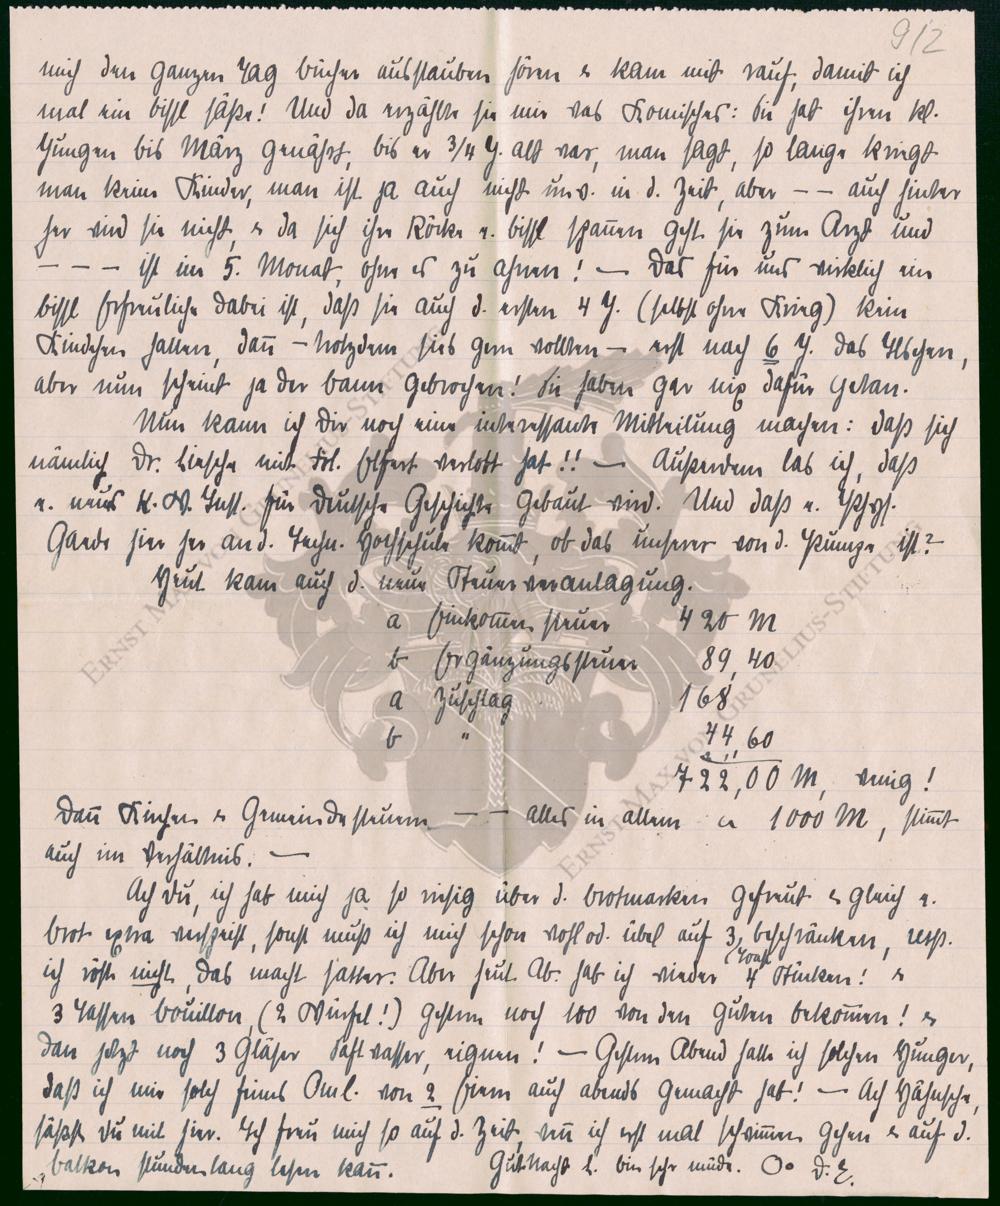 9/2
mich den ganzen Tag bücher ausstauben hören & kam mit rauf, damit ich
mal ein bissl säße! Und da erzählte sie mir was Komisches: Sie hat ihren kl.
Jungen bis März genährt, bis er 3/4 J. alt war, man sagt, so lange kriegt
man keine Kinder, man ist ja auch nicht unw. in d. Zeit, aber – – auch hinter
her wird sie nicht, & da sich ihre Röcke e. bissl spannen geht sie zum Arzt und
– – – ist im 5. Monat, ohne es zu ahnen! – Das für uns wirklich ein
bissl Erfreuliche dabei ist, daß sie auch d. ersten 4 J. (selbst ohne Krieg) kein
Kindchen hatten, dann – trotzdem sies gern wollten – erst nach 6 J. das Ilschen,
aber nun scheint ja der bann gebrochen! Sie haben gar nix dafür getan.
Nun kann ich Dir noch eine interessante Mitteilung machen: daß sich
nämlich Dr. Liesche mit Frl. Elfert verlobt hat!! – Außerdem las ich, daß
e. neues K.W. Inst. für Deutsche Geschichte gebaut wird. Und daß e. Phys.
Gaede hier her an d. Techn. Hochschule kommt, ob das unserer von d. Pumpe ist?
Heut kam auch d. neue Steuerveranlagung.
a Einkommensteuer 420 M
b Ergänzungssteuer 89,40
a Zuschlag 168
b " 44,60
722,00 M, wenig!
Dann Kirchen & Gemeindesteuern – – alles in allem ca 1000 M, stimmt
auch im Verhältnis. –
Ach Du, ich hab mich ja so riesig über d. brotmarken gefreut & gleich e.
brot extra verspeist, sonst muß ich mich schon wohl od. übel auf 3, beschränken, resp.
ich röste nicht, das macht satter. Aber heut Ab. hab ich wieder 4 (Toast) Stücken! &
3 Tassen bouillon, (2 Würfel!) gestern noch 100 von den guten bekommen! &
dan jetzt noch 3 Gläser Saftwasser, eignen! – Gestern Abend hatte ich solchen Hunger,
daß ich mir solch feines Oml. von 2 Eiern auch abends gemacht hab! – Ach Hähnsche,
säßst Du mit hier. Ich freu mich so auf d. Zeit, wenn ich erst mal schwimmen gehen & auf d.
balkon stundenlang lesen kann. Gutnacht l. bin sehr müde. Oo D. E.
ERNST MAX VON GRUNELIUS-STIFTUNG
ERNST MAX VON GRUNELIUS-STIFTUNG